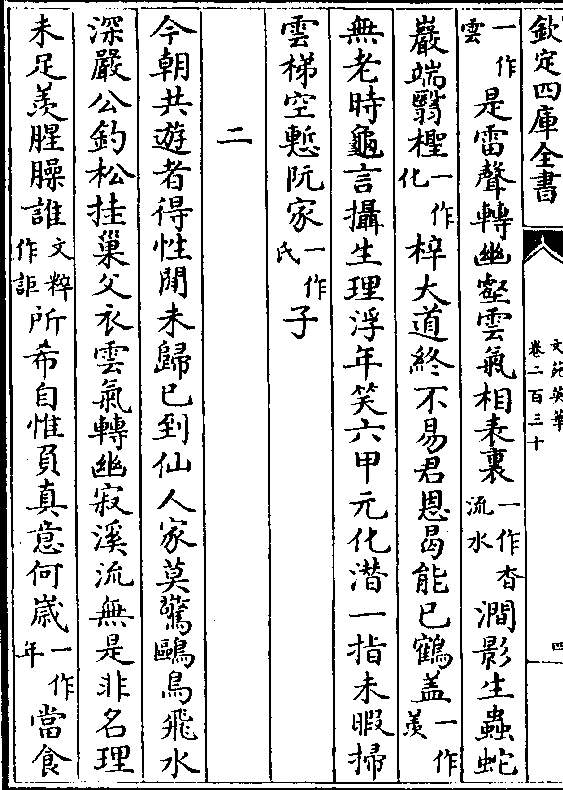 欽定四庫全書
文苑英華
卷二百三十
四
一作雲是雷聲轉幽壑雲氣相表裏一作杳流水澗影生蟲蛇
巖端翳檉一作化梓大道終不易君恩曷能已鶴蓋一作羨
無老時龜言攝生理浮年笑六甲元化潛一指未暇掃
雲梯空慙阮家一作氏子
二
今朝共遊者得性閒未歸已到仙人家莫驚鷗鳥飛水
深嚴公釣松挂巢父衣雲氣轉幽寂溪流無是非名理
未足羨腥臊誰文粹作詎所希自惟負真意何歲一作年當食